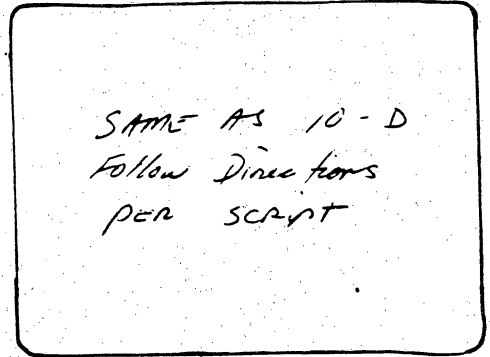 SAME AS 10-D
Follow Directions
PER SCRIPT